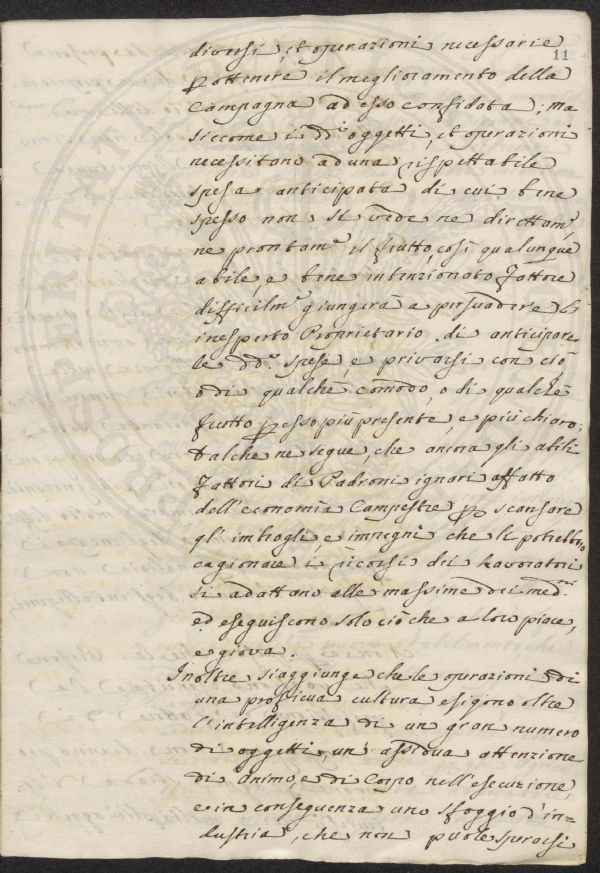 11
diversi, et operazioni necessarie
p ottenere il miglioramento della
Campagna ad esso confidata; ma
siccome i dd.ⁱ oggetti, et operazioni
necessitano ad una rispettabile
spesa anticipata di cui bene
spesso non si vede ne direttam.ᵉ
ne prontam.ᵉ il frutto, così qualunque
abile, e bene intenzionato Fattore
difficilm.ᵉ giungerà a persuadere l'
inesperto Proprietario di anticipare
le dd.ᵉ spese, e privarsi con ciò
o di qualche comodo, o di qualche
frutto p esso più presente, e più chiaro;
talche ne segue, che ancora gli abili
Fattori di Padroni ignari affatto
dell'economia Campestre p scansare
gl'imbrogli, e impegni che li potrebbro
cagionare i ricorsi dei Lavoratori
si adattano alle massime dei med.ᵐⁱ
ed eseguiscono solo ciò che a loro piace,
e giova.
Inoltre si aggiunge che le operazioni di
una proficua cultura esigono oltre
l'intelligenza di un gran numero
di oggetti, un' assidua attenzione
di animo, e di Corpo nell'esecuzione,
e in conseguenza uno sfoggio d'in-
dustria, che non puole sperarsi